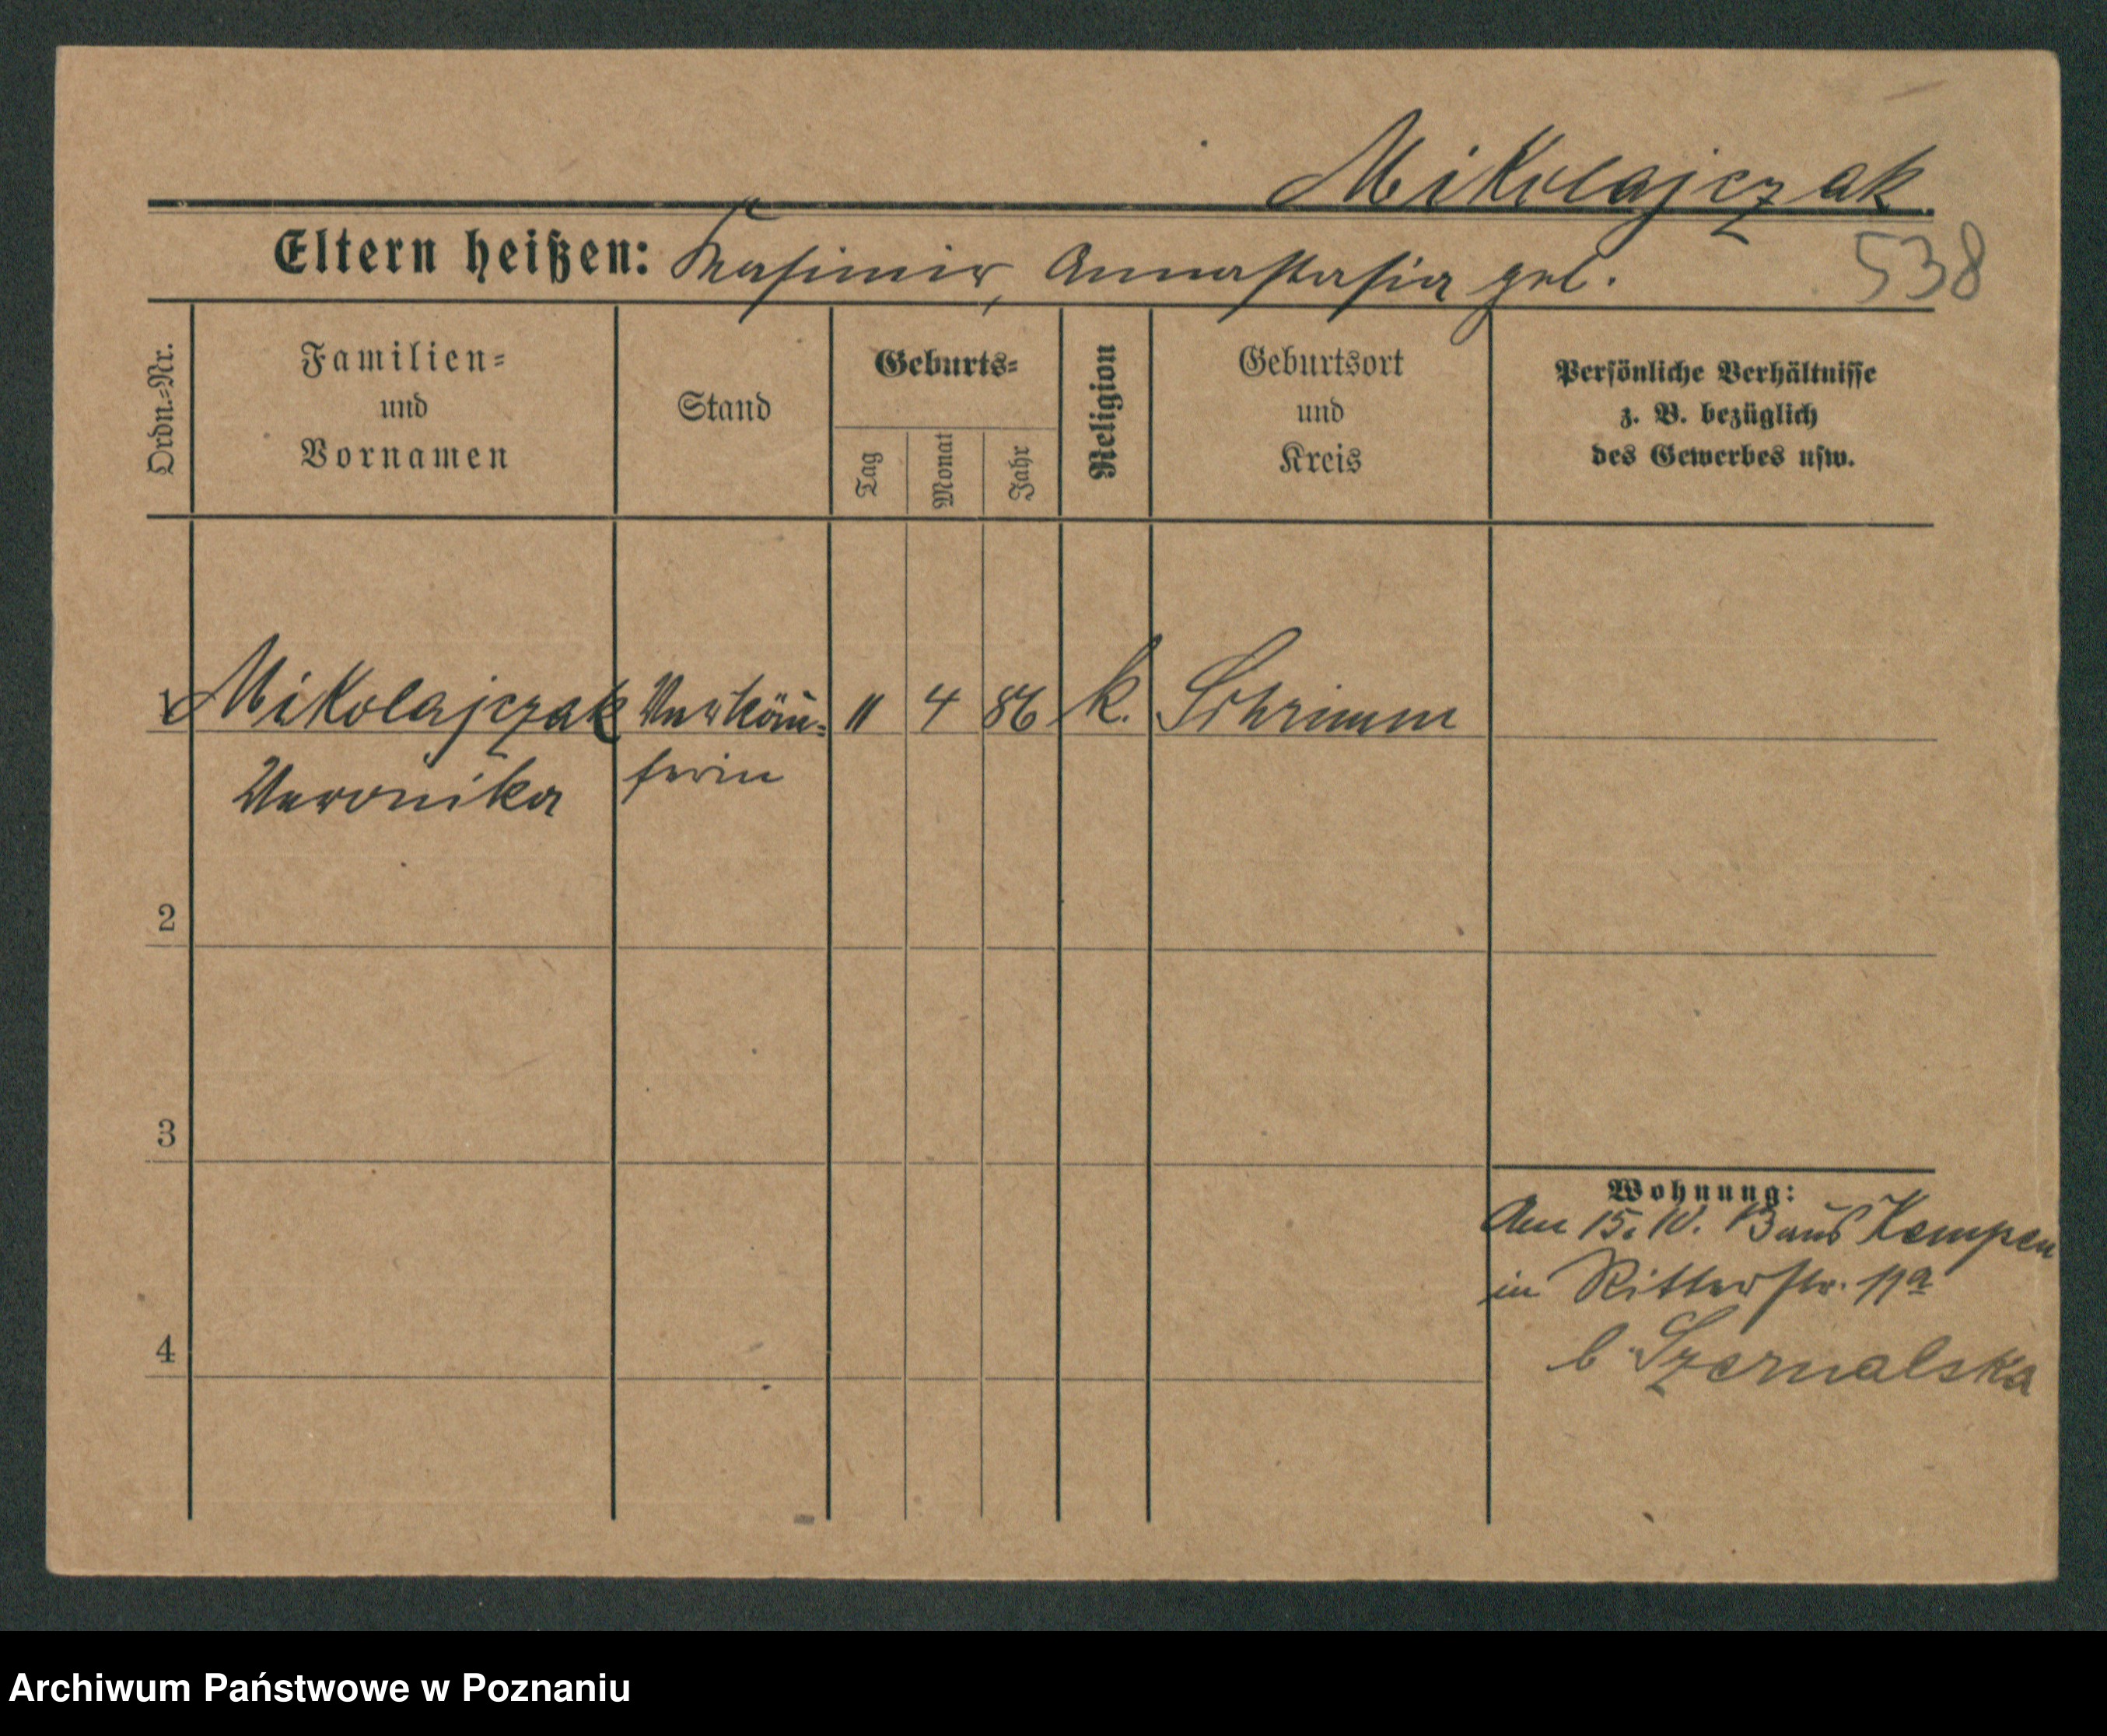 Mikolajczak.
Eltern heißen: Kasimir, Annastasia geb.
538
Ordn.=Nr.
Familien=
und
Vornamen
Stand
Geburts=
Tag
Monat
Jahr
Religion
Geburtsort
und
Kreis
Persönliche Verhältnisse
z. B. bezüglich
des Gewerbes usw.
1 Mikolajczak Verkäu= 11 4 86 k. Schrimm
Veronika ferin
2
3
4
Wohnung:
Am 15. 10. 13 aus Kempen
in Ritterstr. 11a
b. Szernalska
Archiwum Państwowe w Poznaniu